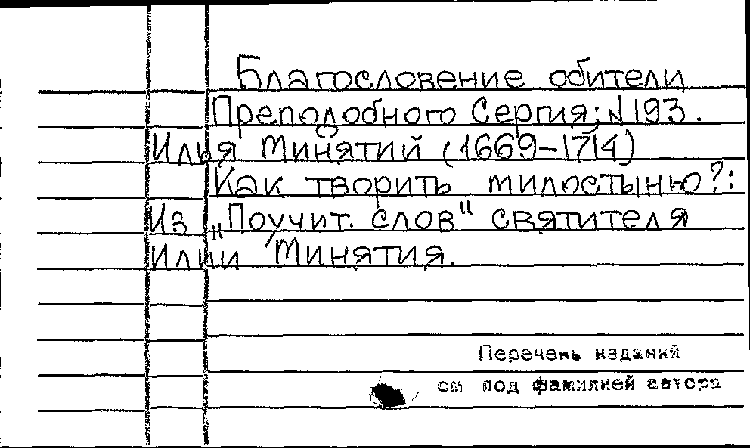 Благословение обители
Преподобного Сергия; N 193.
Илья Минятий (1669-1714)
Как творить милостыню?:
Из „Поучит. слов" святителя
Илии Минятия.
Перечень изданий
см под фамилией автора